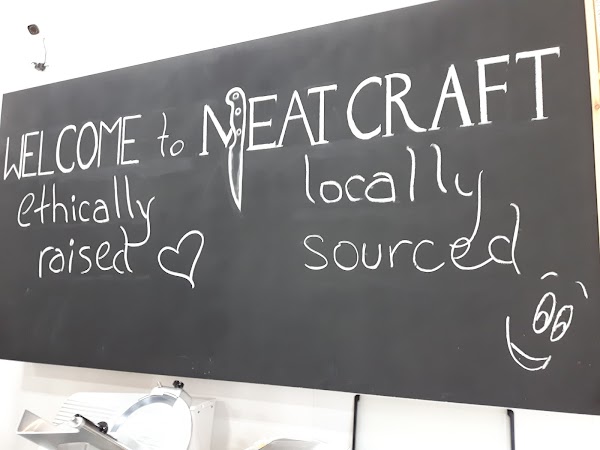 WELCOME to MEATCRAFT
ethically
raised
locally
sourced